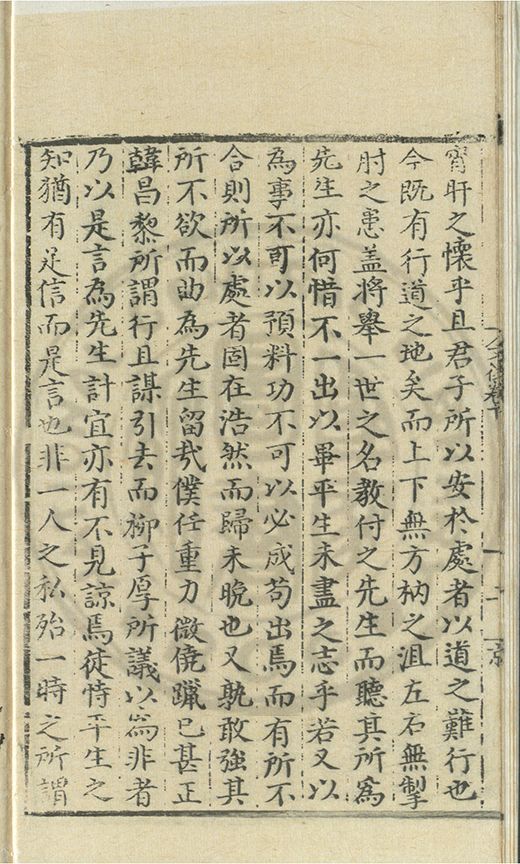 宵旰之懷乎且君子所以安於處者以道之難行也
今既有行道之地矣而上下無方枘之沮左右無掣
肘之患盖將舉一世之名教付之先生而聽其所為
先生亦何惜不一出以畢平生未盡之志乎若又以
為事不可以預料功不可以必成苟出焉而有所不
合則所以處者固在浩然而歸未晩也又孰敢強其
所不欲而曲為先生留㢤僕任重力微僥躐已甚正
韓昌黎所謂行且謀引去而柳子厚所議以為非者
乃以是言為先生計宜亦有不見諒焉徒恃平生之
知猶有足信而是言也非一人之私殆一時之所謂